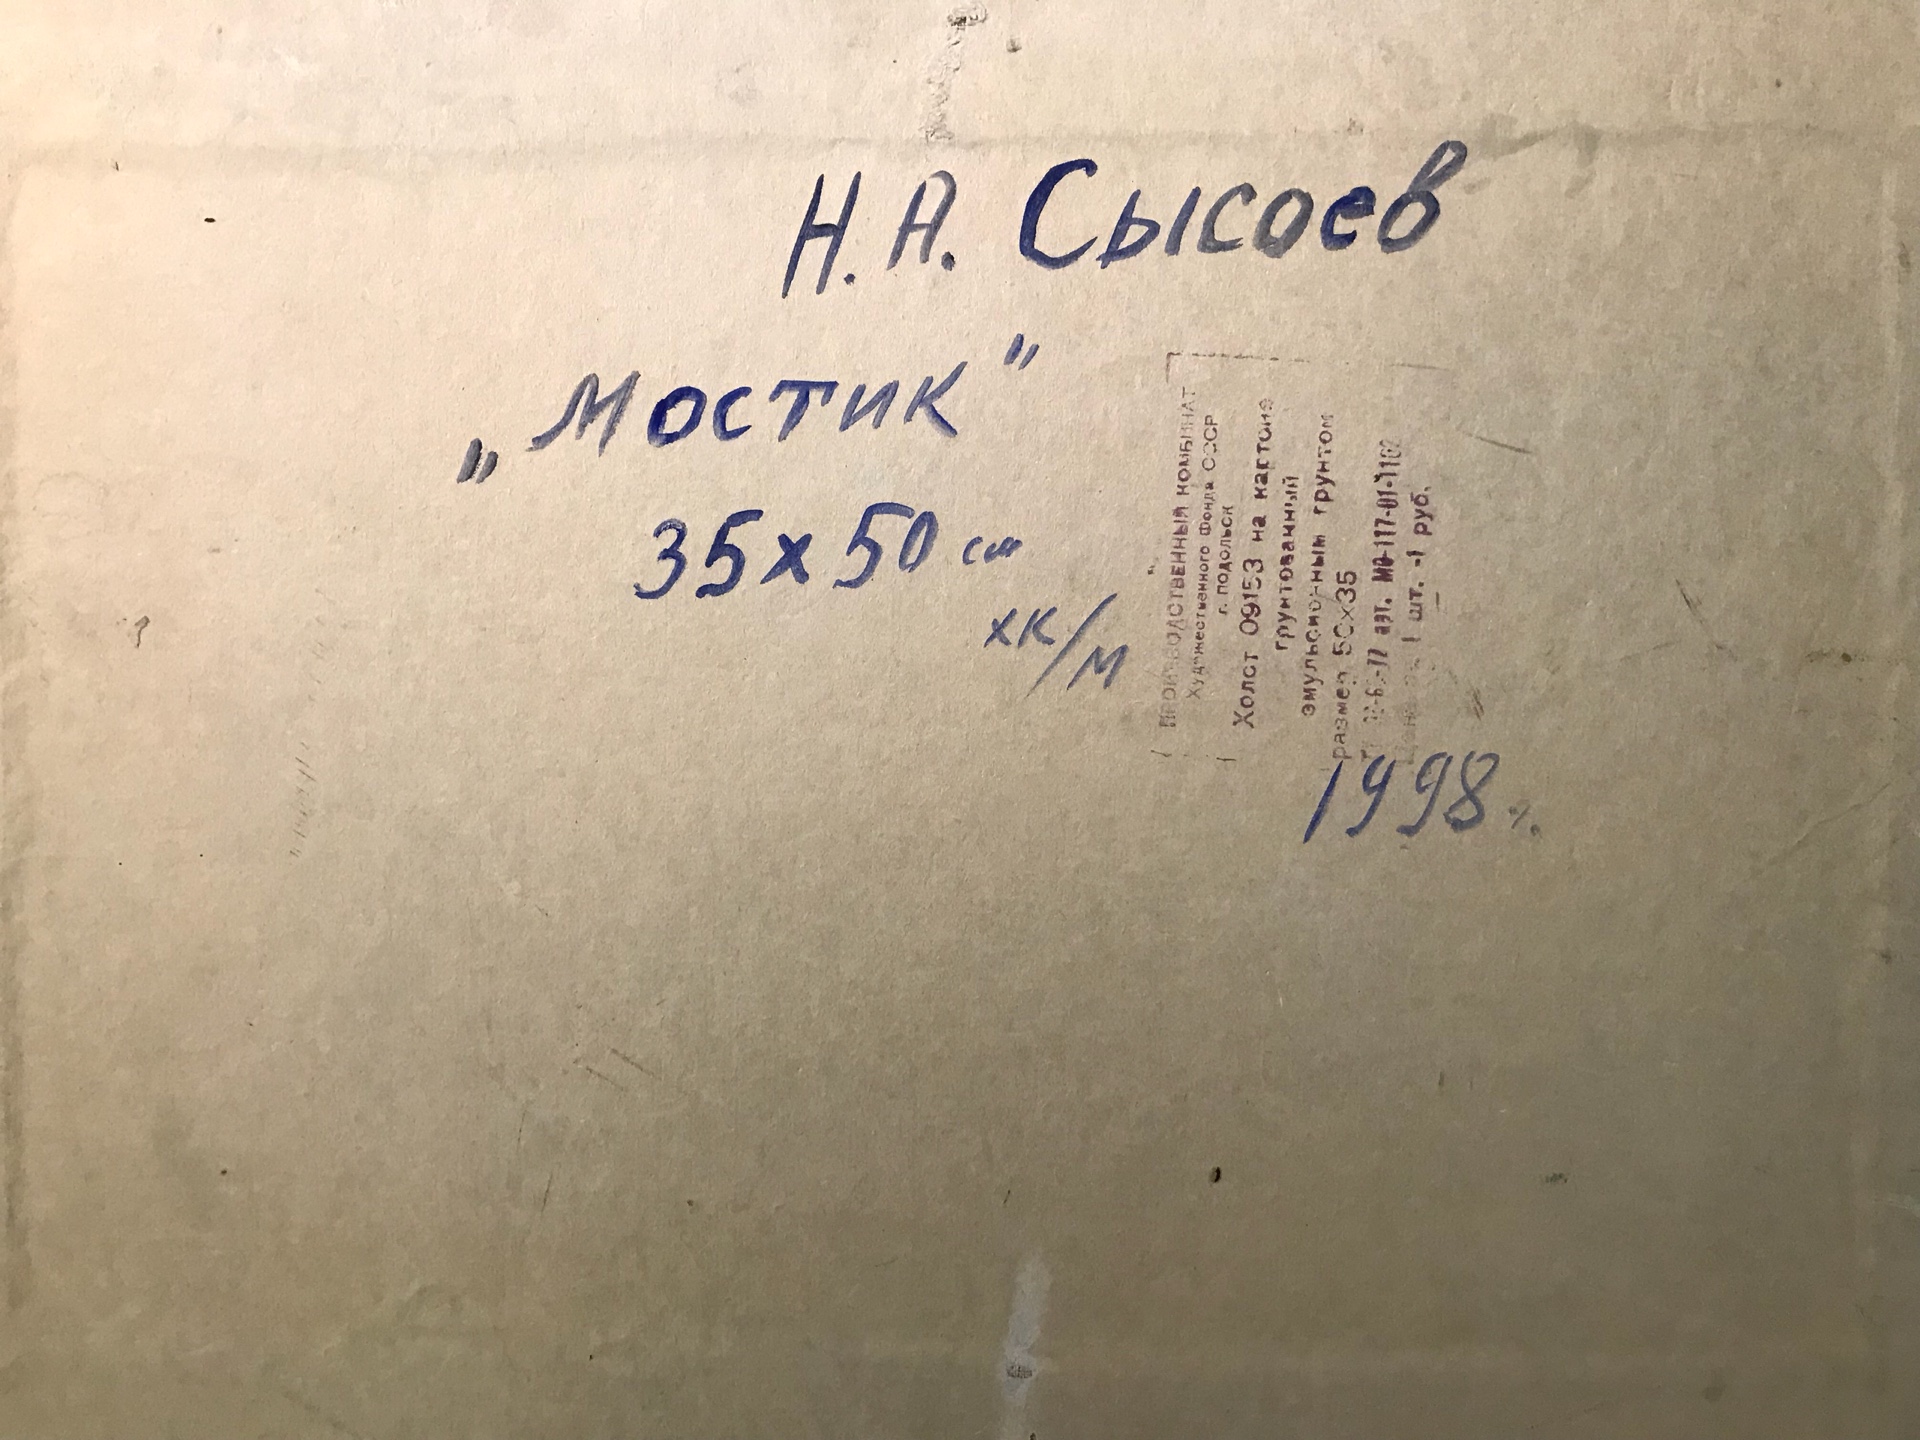 Н. А. Сысоев
„Мостик"
35х50 см
хк/м
ПРОИЗВОДСТВЕННЫЙ КОМБИНАТ
Художественного Фонда СССР
г. подольск
Холст 09153 на картоне
грунтованный
эмульсионным грунтом
размер 50х35
арт. МФ-117-01-1102
Цена за 1 шт. -1 руб.
1998 г.